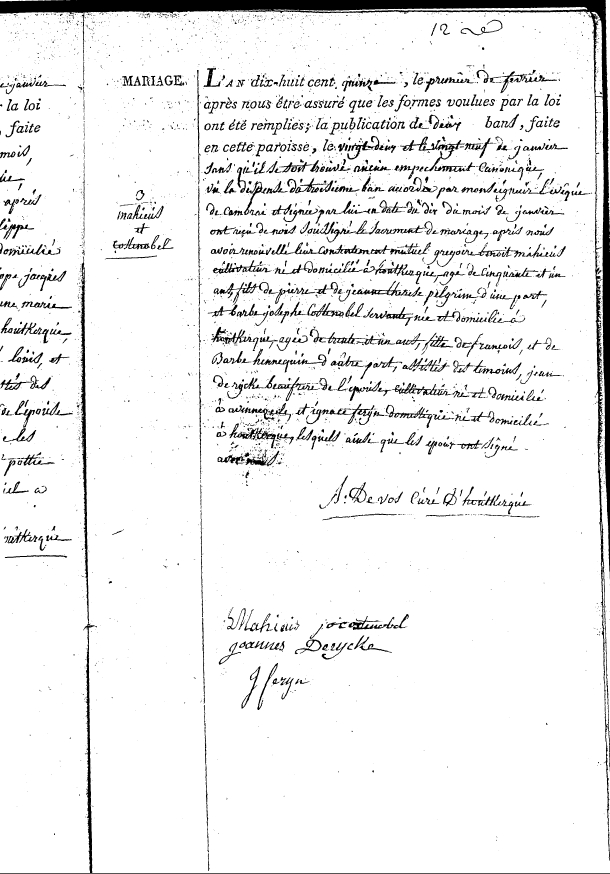 12
e janvier
la loi
, faite
mois,
après
lippe
domicilié
ppe jacques
une marie
houtkerque,
louis, et
des
de l'épouse
e les
pottie
iel a
houtkerque
MARIAGE.
3
mahieus
et
Costenobel
L'AN dix-huit cent quinze, le premier de fevrier
après nous être assuré que les formes voulues par la loi
ont été remplies; la publication de deux bans, faite
en cette paroisse, le vingt deux et le vingt neuf de janvier
sans qu'il se soit trouvé aucun empechement Canonique,
vû la dispense du troisieme ban accordée par monseigneur L'évêque
de Cambrai et signée par lui en date du dix du mois de janvier
ont reçu de nous soussigné le sacrement de mariage, après nous
avoir renouvellé leur Consentement mutuel gregoire benoit mahieus
cultivateur né et domicilié à houtkerque, agé de Cinquante et un
ans, fils de pierre et de jeanne therese pelgrim, d'une part,
et barbe josephe Costenobel servante, née et domiciliée à
houtkerque, agée de trente et un ans, fille de françois, et de
Barbe hennequin d'autre part, assistés des temoins, jean
de rycke beaufrere de l'épouse, cultivateur né et domicilié
à winnezeele, et ignace feryn domestique né et domicilié
à houtkerque, lesquels ainsi que les epoux ont signé
avec nous.
A: De vos Curé D'houtkerque
Mahieus jo costenobel
joannes Derycke
J feryn